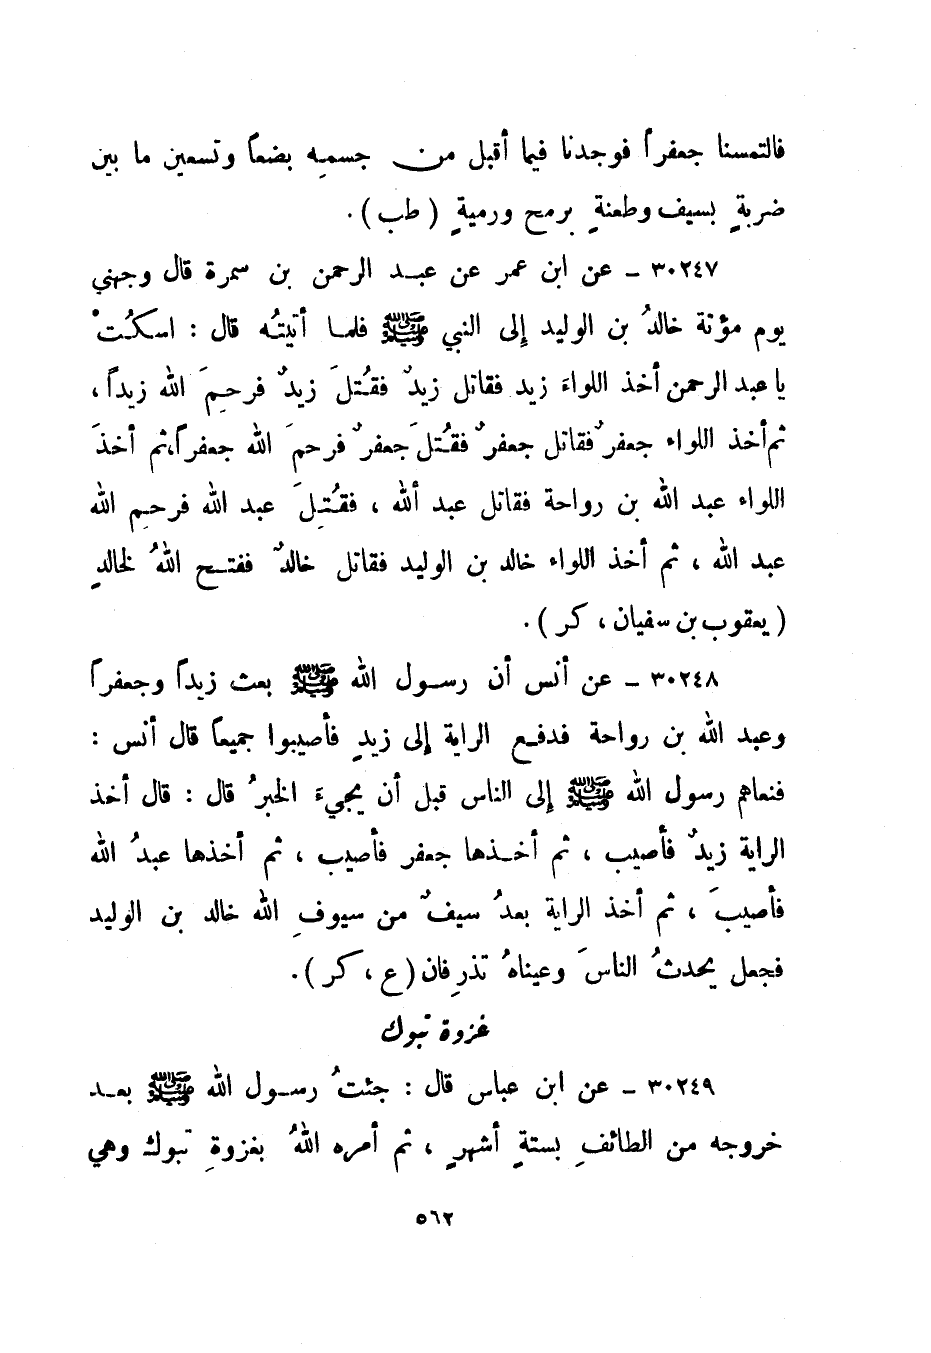 فالتمسنا جعفراً فوجدنا فيما أقبل من جسمه بضعاً وتسعين ما بين
ضربةٍ بسيف وطعنةٍ برمح ورميةٍ ( طب ) .
٣٠٢٤٧ ـ عن ابن عمر عن عبد الرحمن بن سمرة قال وجهني
يوم مؤتة خالدُ بن الوليد إلى النبي ﷺ فلما أتيتُه قال : اسكُتْ
يا عبد الرحمن أخذ اللواءَ زيد فقاتل زيدٌ فقُتلَ زيدٌ فرحِمَ الله زيداً ،
ثم أخذ اللواء جعفرٌ فقاتل جعفرٌ فقُتلَ جعفرٌ فرحمَ الله جعفراً، ثم أخذَ
اللواء عبد الله بن رواحة فقاتل عبد ألله ، فقُتِلَ عبد الله فرحِم الله
عبد الله ، ثم أخذ اللواء خالد بن الوليد فقاتل خالدٌ ففتح اللهُ لخالدٍ
( يعقوب بن سفيان ، كر ) .
٣٠٢٤٨ ـ عن أنس أن رسول الله ﷺ بعث زيداً وجعفراً
وعبد الله بن رواحة فدفع الراية إلى زيدٍ فأصيبوا جميعاً قال أنس :
فنعاهم رسول الله ﷺ إلى الناس قبل أن يجيءَ الخبرُ قال : قال أخذ
الراية زيدٌ فأصيب ، ثم أخذها جعفر فأصيب ، ثم أخذها عبدُ الله
فأصيبَ ، ثم أخذ الراية بعدُ سيفٌ من سيوفِ الله خالد بن الوليد
فجعل يحدثُ الناسَ وعيناهُ تذرِفان ( ع ، كر ) .
غزوة تبوك
٣٠٢٤٩ ـ عن ابن عباس قال : جئتُ رسول الله ﷺ بعد
خروجه من الطائفِ بستةٍ أشهرٍ ، ثم أمره اللهُ بغزوةِ تبوك وهي
٥٦٢